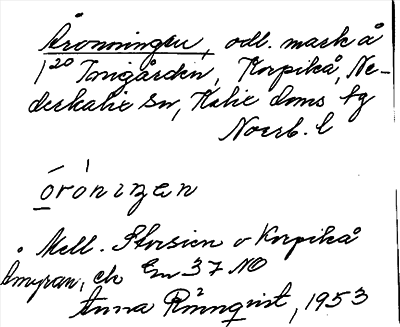 Åronningen, odl. mark å
1²⁰ Tomgården, Korpikå, Ne-
derkalix sn, Kalix doms tg
Norrb. l
óróningen
Mell. Storsien o Korpikå
Åmyran, ek 37 NO
Anna Rönnqvist, 1953